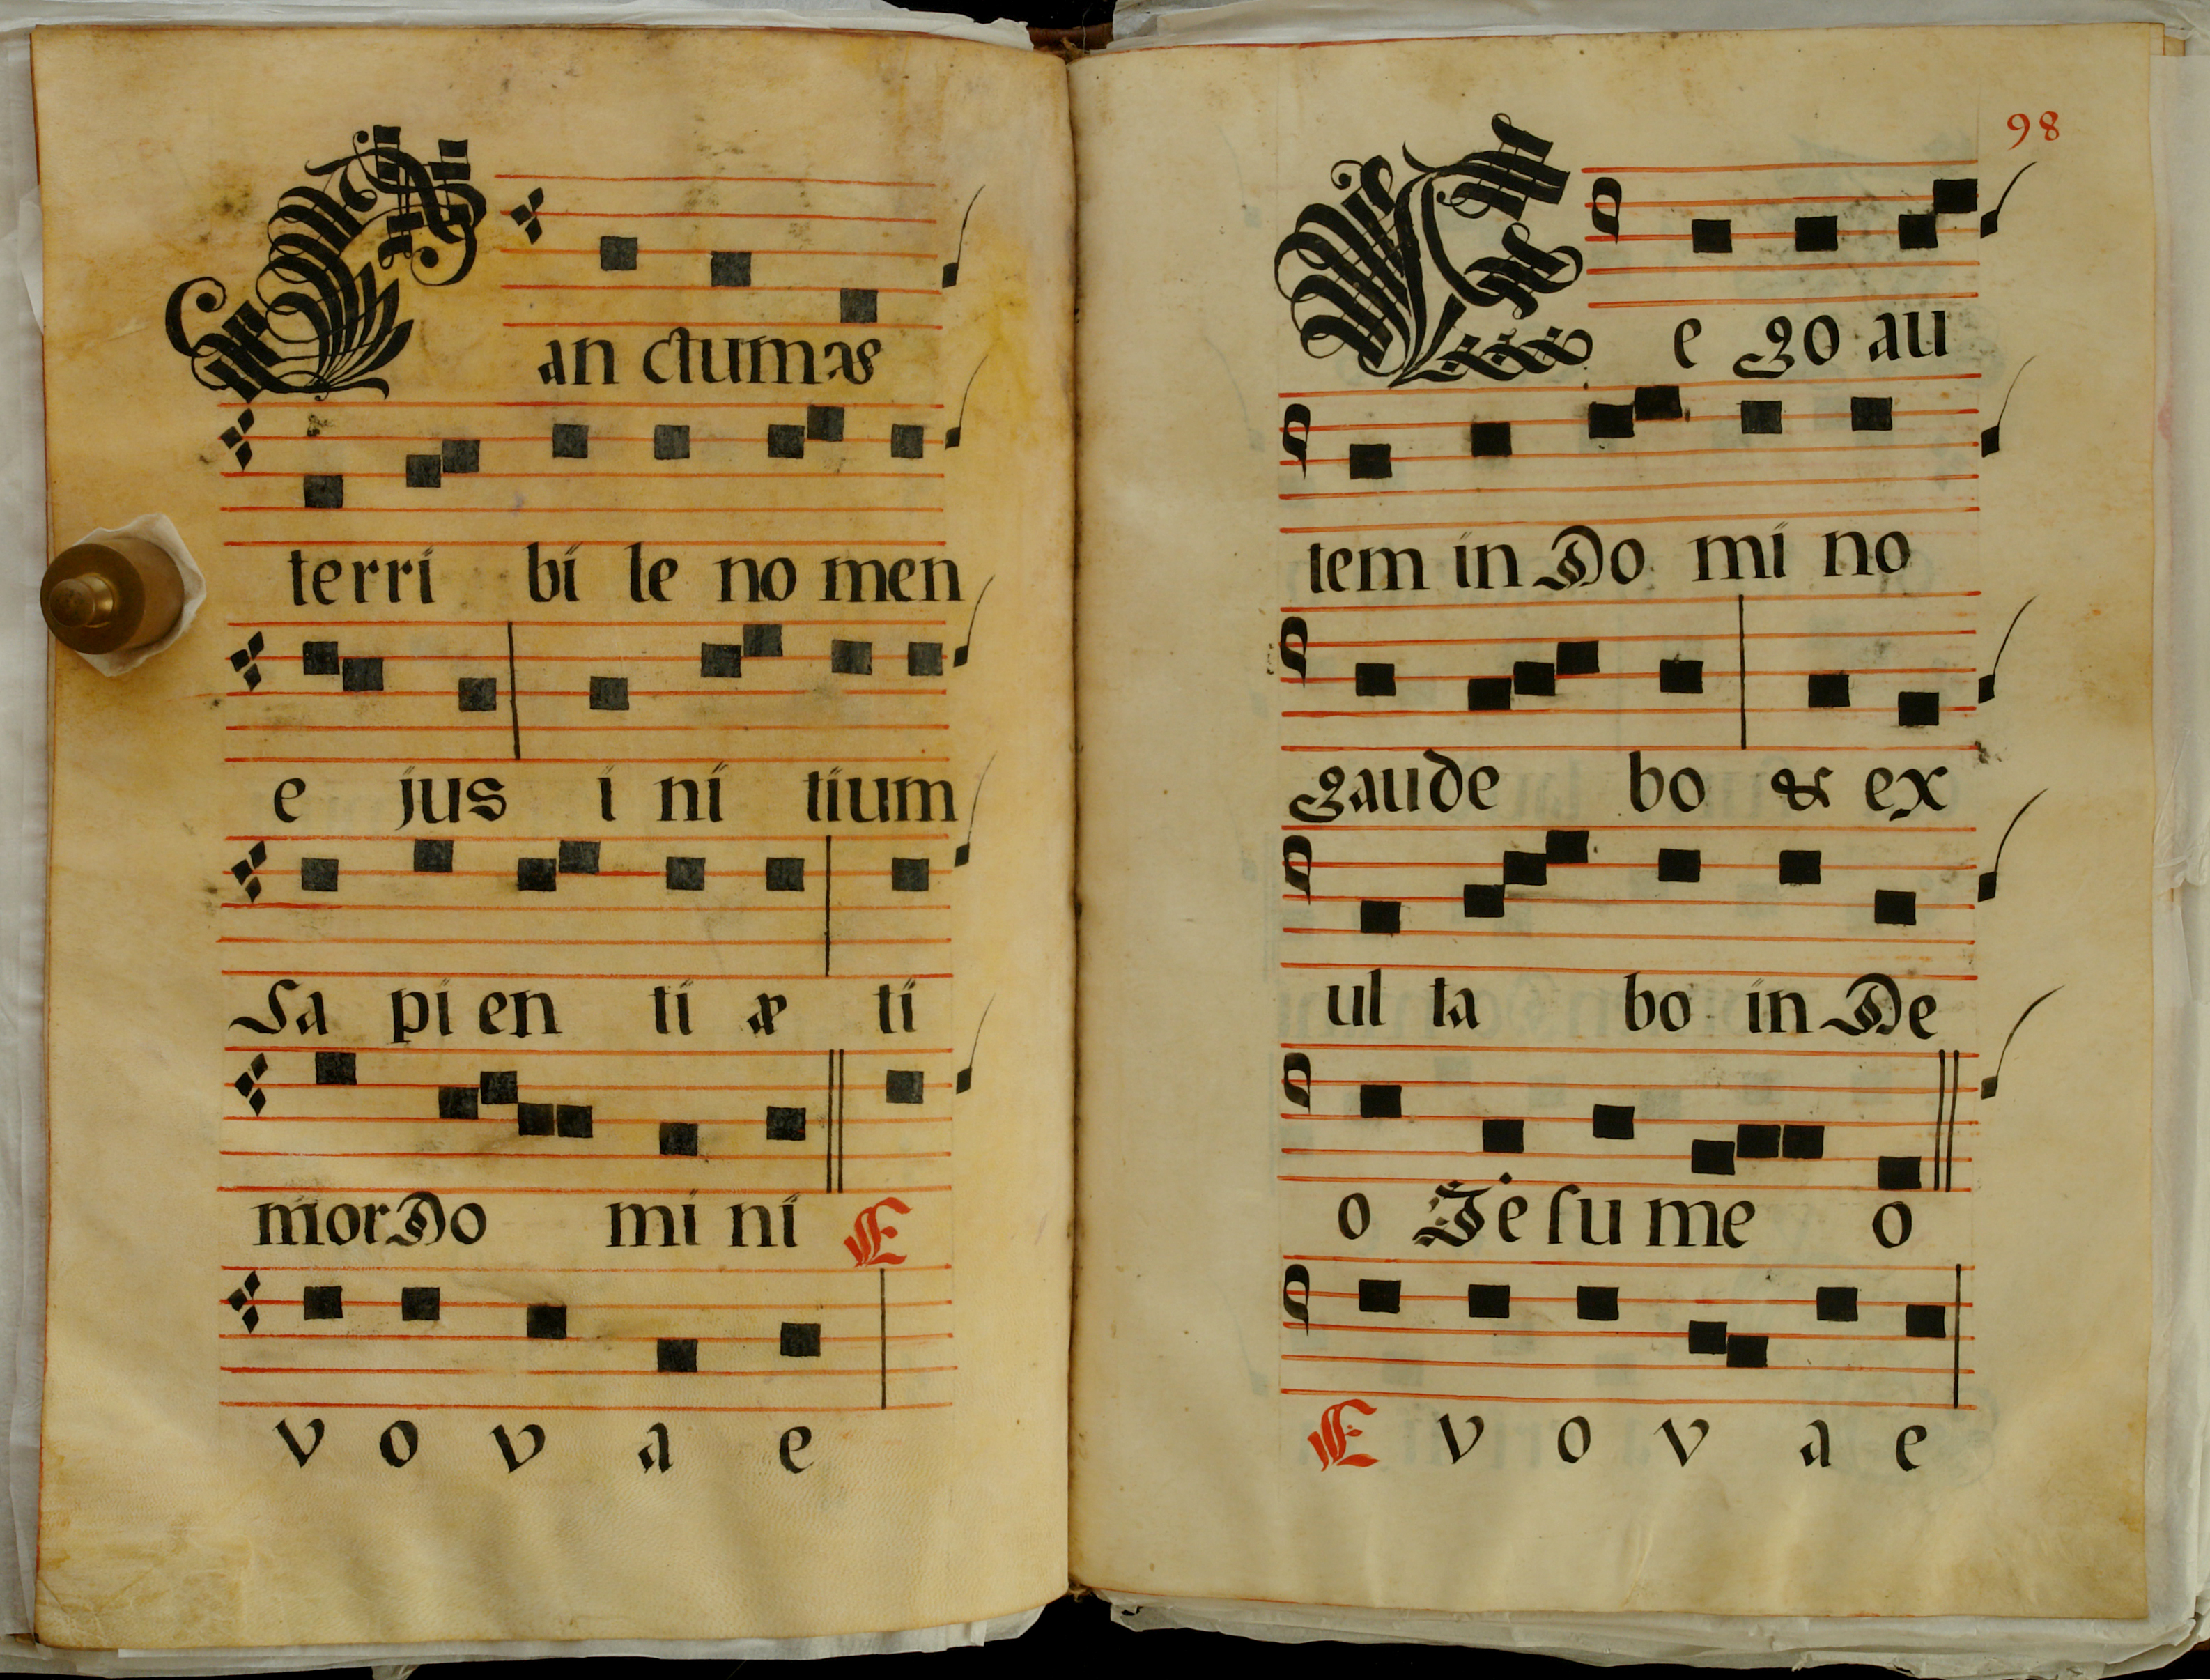 San ctum &
terri bi le no men
e jus i ni tium
Sa pi en ti æ ti
mor Do mi ni E
v o v a e
98
E e go au
tem in Do mi no
gaude bo & ex
ul ta bo in De
o Je su me o
E v o v a e